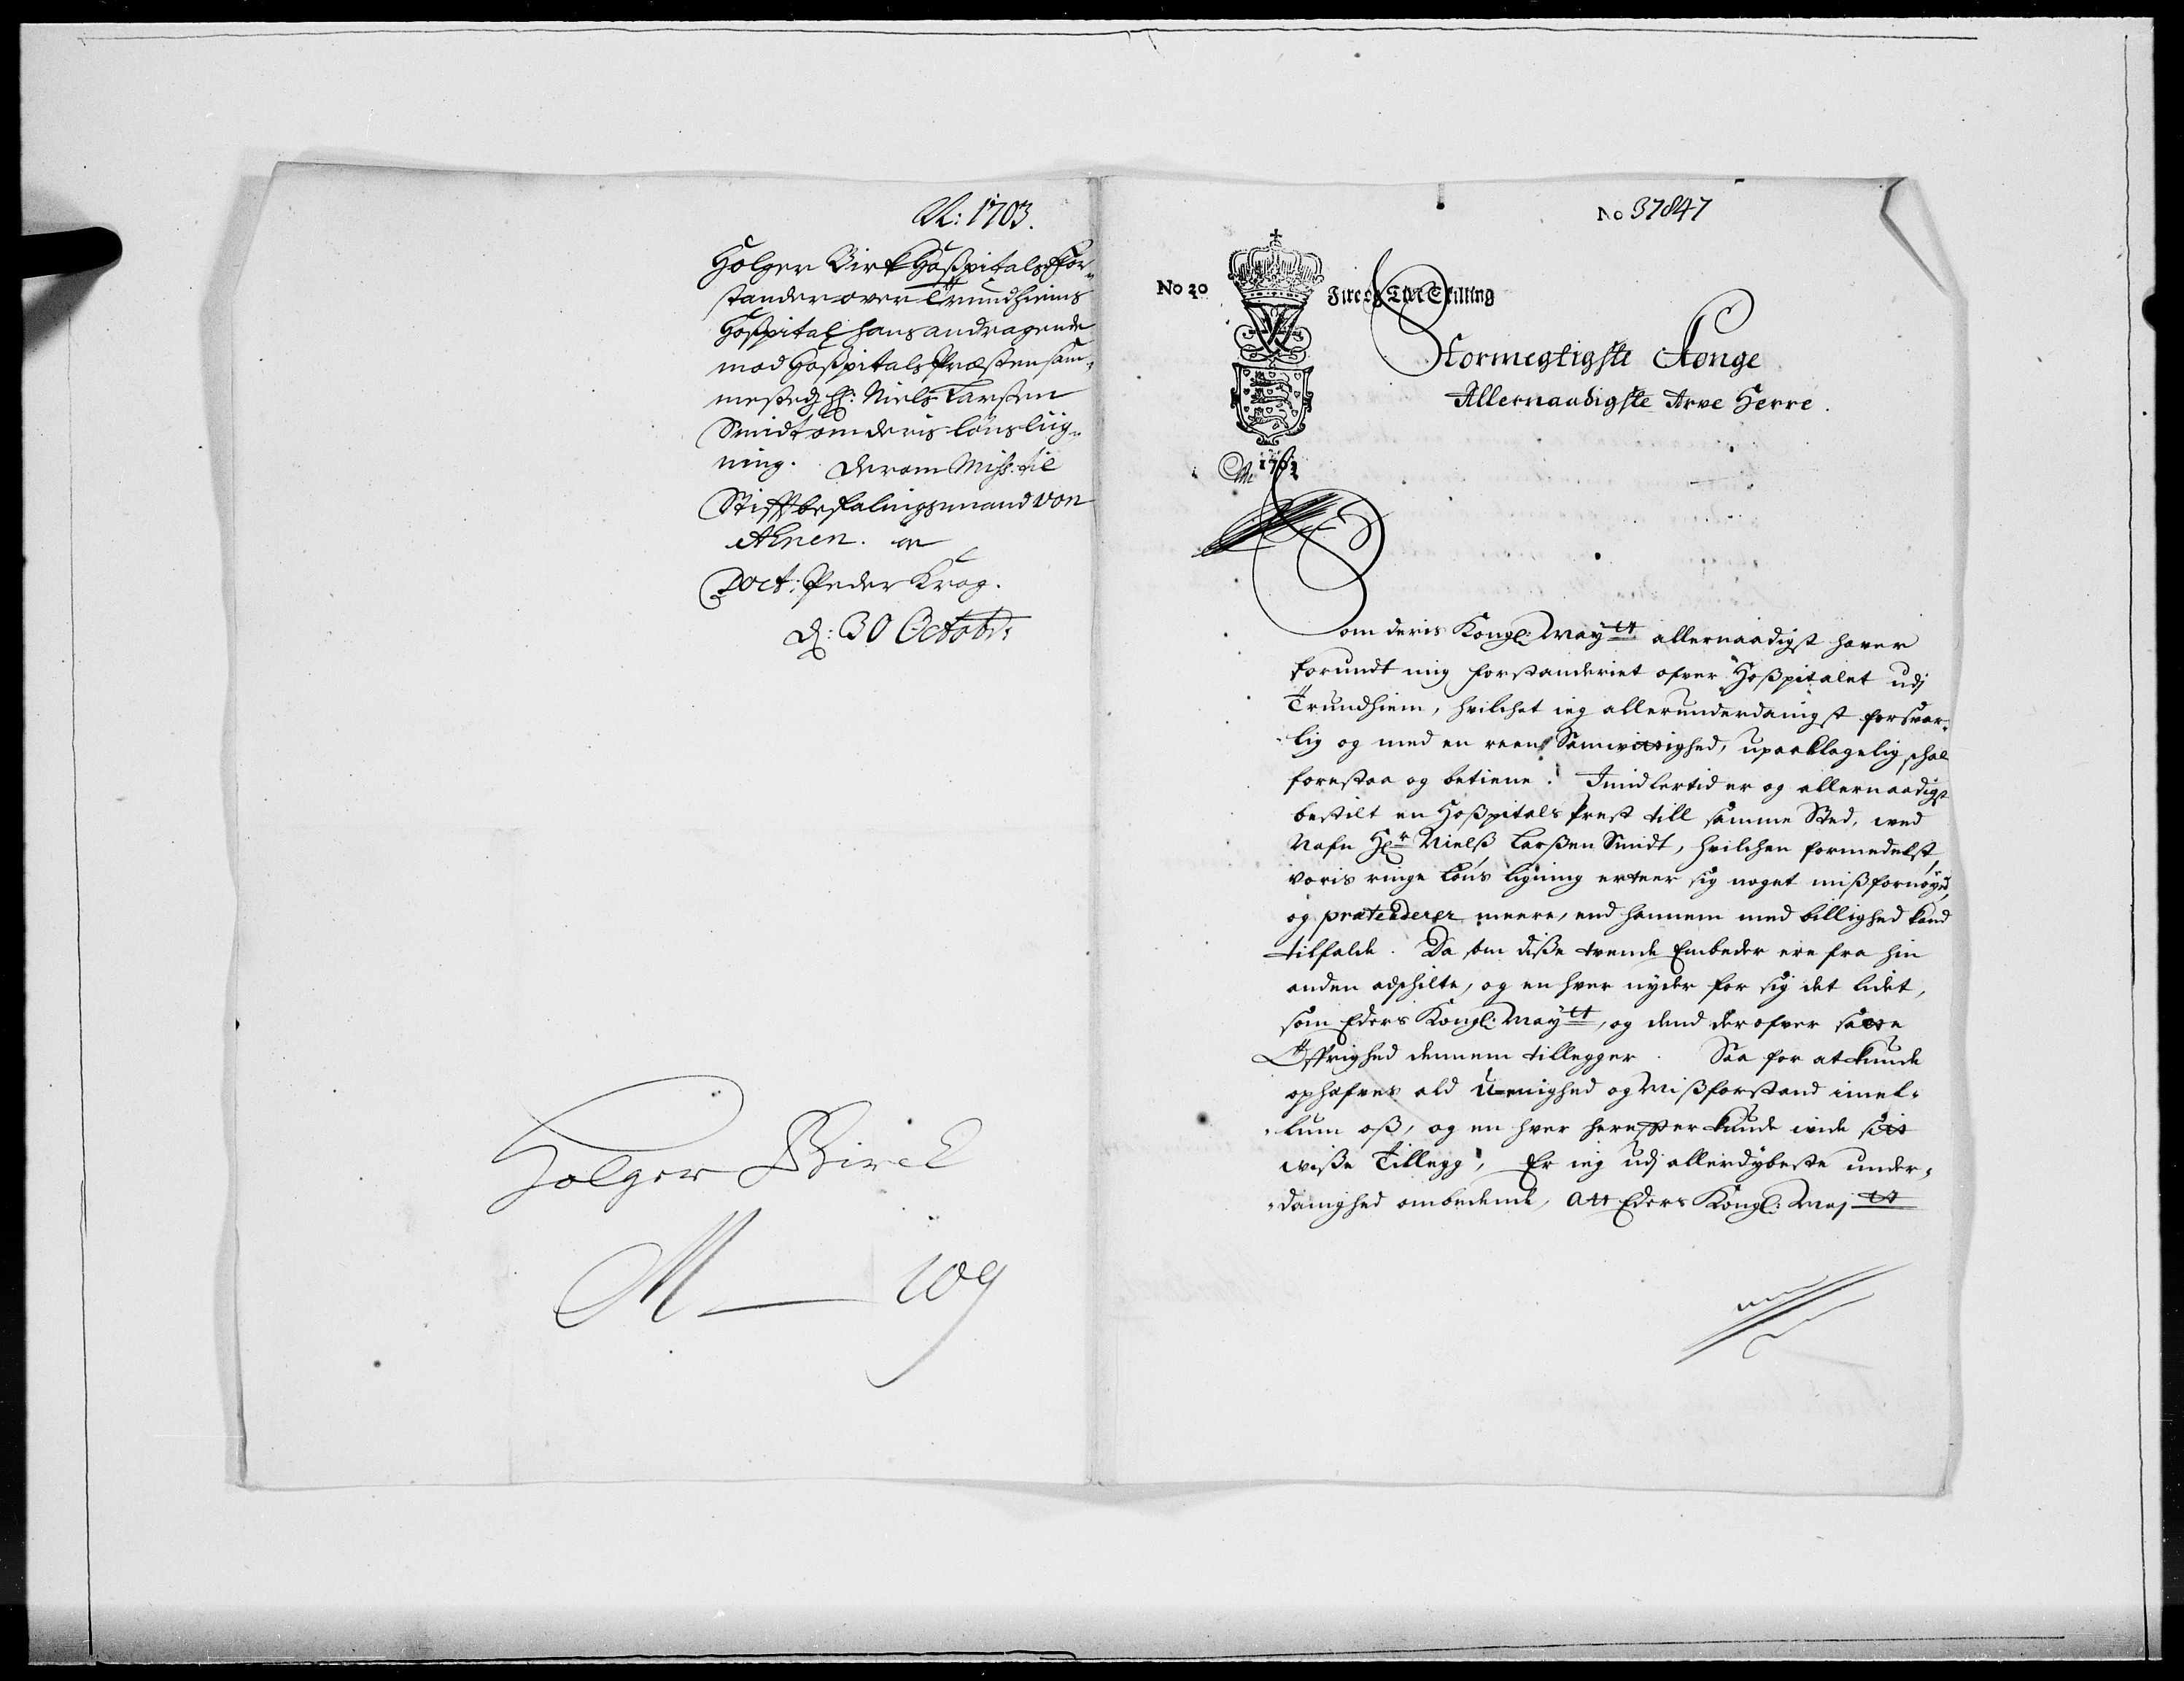 A: 1703.
Holger Birk Hoßpitals For-
stander over Trundhiems
Hoßpital hans andragende
mod Hoßpitals Præsten sam-
mested Hr: Niels Larsen
Smidt om deris löns lig-
ning. Derom Miss: til
Stiftbefalingsmand von
Ahnen. og
Doct: Peder Krog.
d: 30 Octobr:
Holger Birck
M — 109
No 37847
No 20 Fire og Tive Skilling
Stormegtigste Konge
Allernaadigste Arve Herre.
1703
Som deris Kongl: Maytt allernaadigst haver
forundt mig forstanderiet ofver Hoßpitalet udj
Trundhiem, hvilchet ieg allerunderdanigst forsvar-
lig og med en reen Samvittighed, upaaklagelig schal
forestaa og betiene. Imidlertid er og allernaadigst
bestilt en Hoßpitals Prest till samme Sted, ved
Nafn Hr Nielß Larßen Smidt, hvilchen formedelst
voris ringe löns ligning erteer sig noget mißfornöyed,
og prætenderer meere, end hannem med billighed kand
tilfalde. Da som diße tvende Embeder ere fra hin
anden adschilte, og en hver nyder for sig det lidet,
som Eders Kongl: Maytt, og dend derofver satte
Öffrighed dennem tillegger. Saa for at kunde
ophæfves ald U-enighed og Mißforstand imel-
lum oß, og en hver herefter kunde vide sit
viße Tillegg, Er ieg udj allerdybeste under-
danighed ombedende, Att Eders Kongl: Majtt